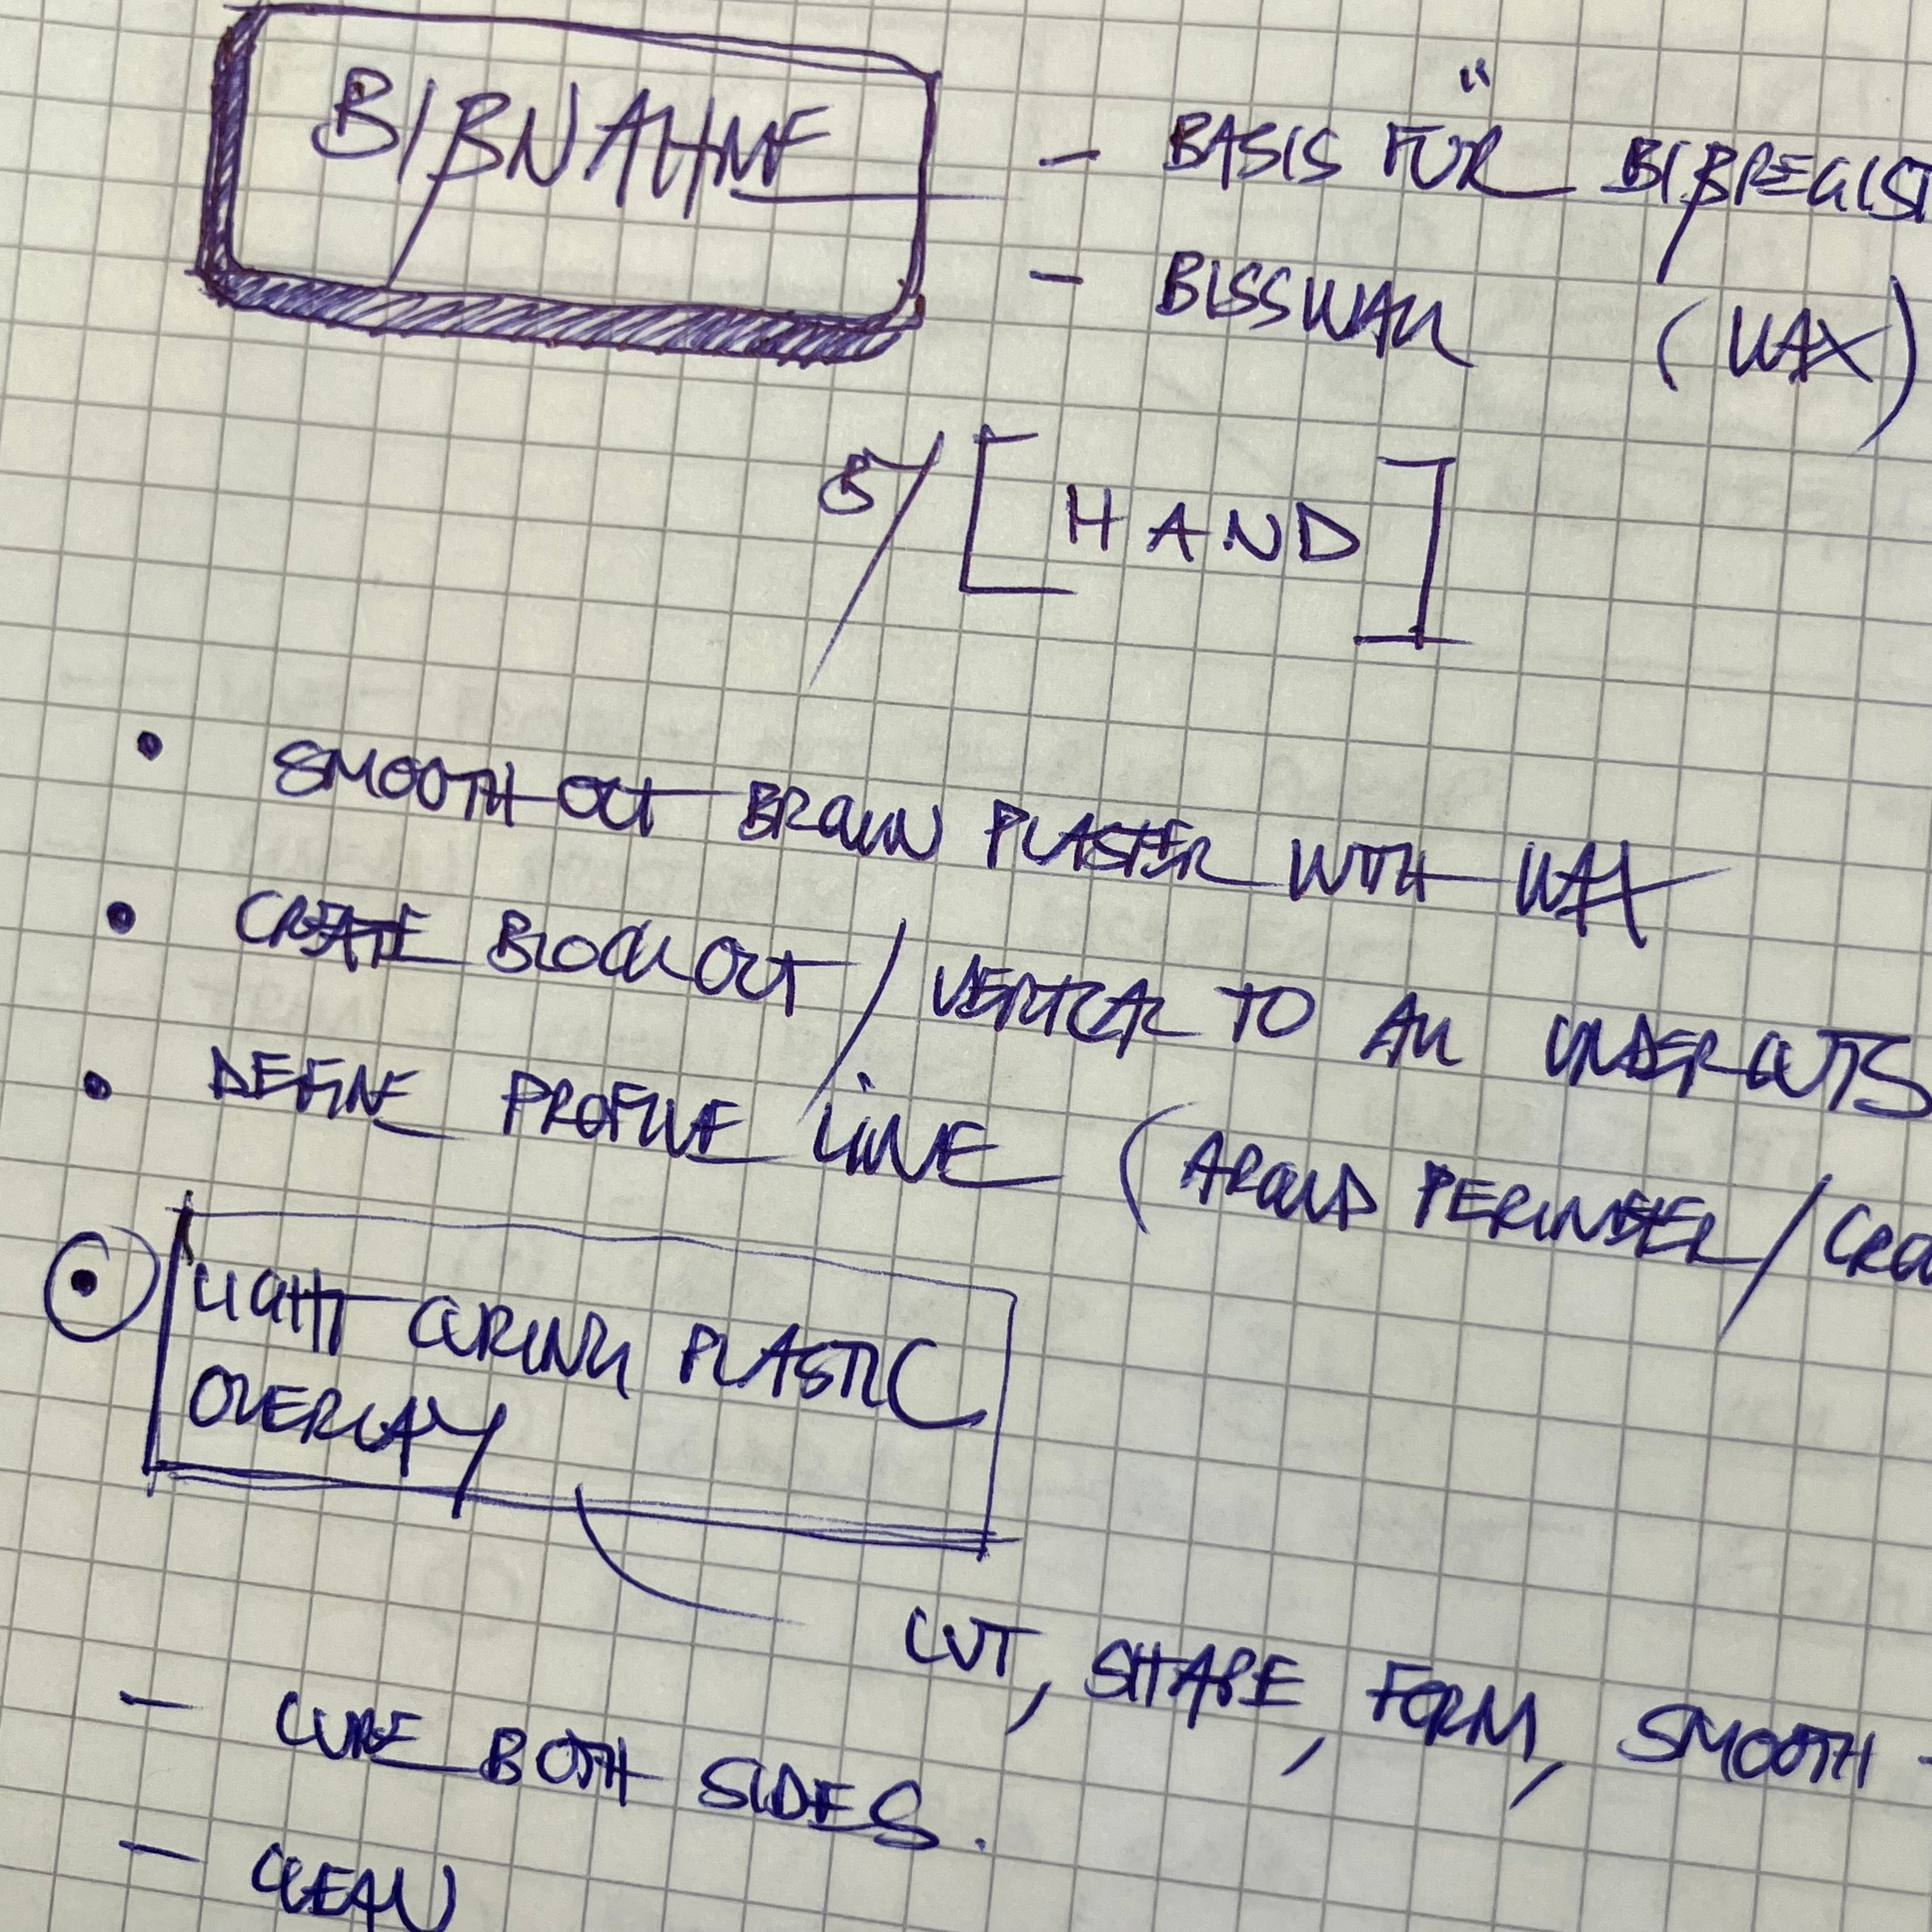 BIßNAHME
- BASIS FÜR BIßREGIST
- BISSWALL (WAX)
B/ [HAND]
• SMOOTH OUT BROWN PLASTER WITH WAX
• CREATE BLOCKOUT / VERTICAL TO ALL UNDERCUTS
• DEFINE PROFILE LINE (AROUND PERIMETER / CRO
LIGHT CURING PLASTIC
OVERLAY
CUT, SHAPE, FORM, SMOOTH -
- CURE BOTH SIDES.
- CLEAN